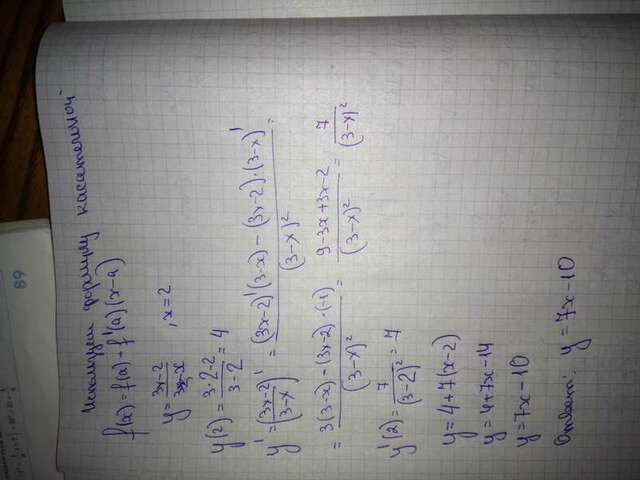 Используем формулу касательной
f(x)=f(a)+f'(a)(x-a)
y=\frac{3x-2}{3-x}, x=2
y(2)=\frac{3·2-2}{3-2}=4
y'=\left(\frac{3x-2}{3-x}\right)'=\frac{(3x-2)'(3-x)-(3x-2)·(3-x)'}{(3-x)^2}=
=\frac{3(3-x)-(3x-2)·(-1)}{(3-x)^2}=\frac{9-3x+3x-2}{(3-x)^2}=\frac{7}{(3-x)^2}
y'(2)=\frac{7}{(3-2)^2}=7
y=4+7(x-2)
y=4+7x-14
y=7x-10
Ответ: y=7x-10
89